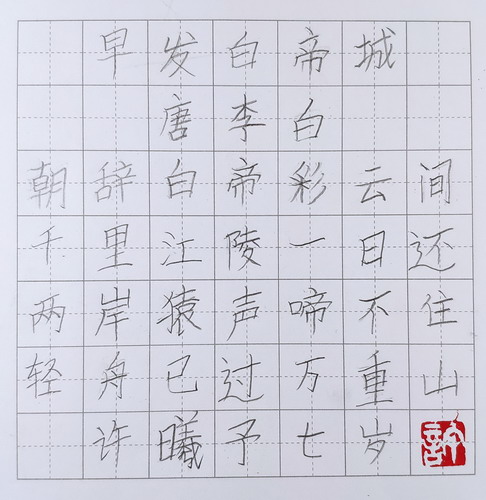 早发白帝城
唐李白
朝辞白帝彩云间
千里江陵一日还
两岸猿声啼不住
轻舟已过万重山
许曦予七岁
許